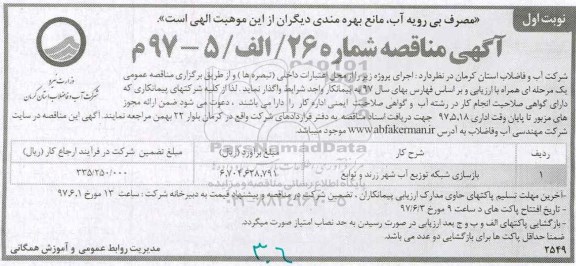 نوبت اول
«مصرف بی رویه آب، مانع بهره مندی دیگران از این موهبت الهی است».
آگهی مناقصه شماره ۲۶/الف/۵-۹۷ م
وزارت نیرو
شرکت آب و فاضلاب استان کرمان
شرکت آب و فاضلاب استان کرمان در نظر دارد: اجرای پروژه زیر را از محل اعتبارات داخلی (تبصره ها) و از طریق برگزاری مناقصه عمومی
یک مرحله ای همراه با ارزیابی و بر اساس فهارس بهای سال ۹۷ به پیمانکار واجد شرایط واگذار نماید. لذا از کلیه شرکتهای پیمانکاری که
دارای گواهی صلاحیت انجام کار در رشته آب و گواهی صلاحیت ایمنی اداره کار را دارا می باشند، دعوت می شود ضمن ارائه مجوز
های مزبور تا پایان وقت اداری ۹۷/۵/۱۸ جهت دریافت اسناد مناقصه به دفتر قراردادهای شرکت واقع در کرمان بلوار ۲۲ بهمن مراجعه نمایند. آگهی این مناقصه در سایت
شرکت مهندسی آب وفاضلاب به آدرس www.abfakerman.ir موجود میباشد.
ردیف شرح کار مبلغ برآورد (ریال) مبلغ تضمین شرکت در فرآیند ارجاع کار (ریال)
۱ بازسازی شبکه توزیع آب شهر زرند و توابع ۶,۷۰۴,۶۳۸,۷۹۱ ۳۳۵/۲۵۰/۰۰۰
-آخرین مهلت تسلیم پاکتهای حاوی مدارک ارزیابی پیمانکاران، تضمین شرکت در مناقصه و پیشنهاد قیمت به دبیرخانه شرکت: ساعت ۱۳ مورخ ۹۷/۶/۱
- تاریخ افتتاح پاکت های د ساعت ۹ مورخ ۹۷/۶/۳
- بازگشایی پاکتهای الف و ب و ج بعد ارزیابی در صورت رسیدن به حد نصاب امتیاز صورت میگردد.
ضمنا حداقل پاکت ها برای بازگشایی دو عدد می باشد.
۲۵۴۹
مدیریت روابط عمومی و آموزش همگانی
ParsNamadData
پایگاه اطلاع رسانی مناقصه و مزایده